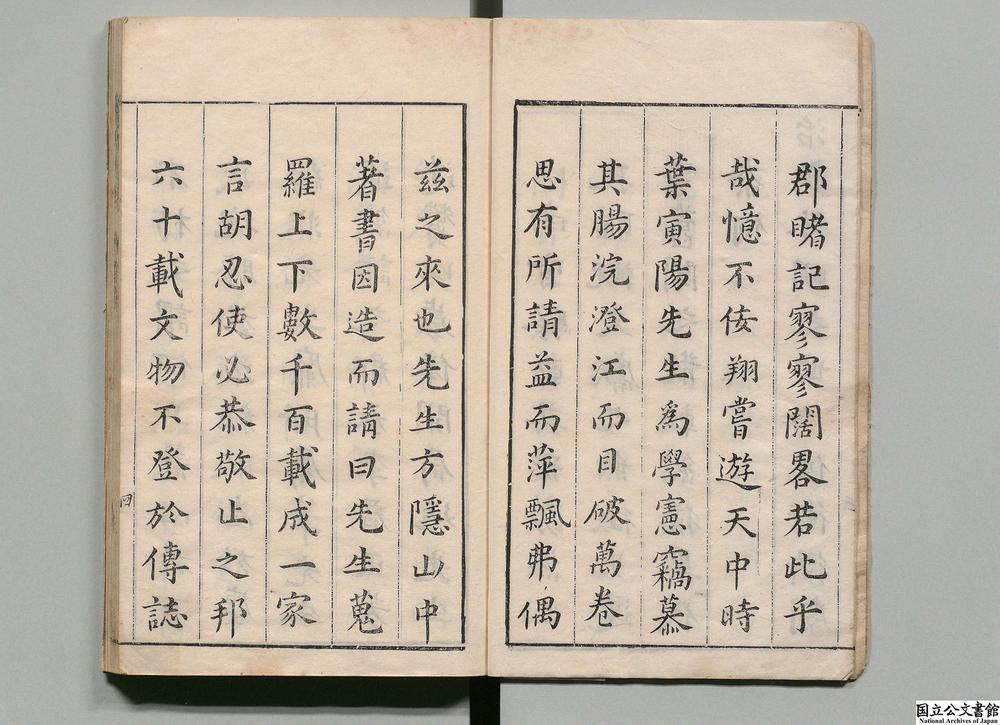 郡睹記寥寥闊畧若此乎
哉憶不佞翔嘗遊天中時
葉寅陽先生爲學憲竊慕
其腸浣澄江而目破萬卷
思有所請益而萍飄弗偶
茲之來也先生方隱山中
著書因造而請曰先生蒐
羅上下數千百載成一家
言胡忍使必恭敬止之邦
六十載文物不登於傳誌
四
国立公文書館
National Archives of Japan